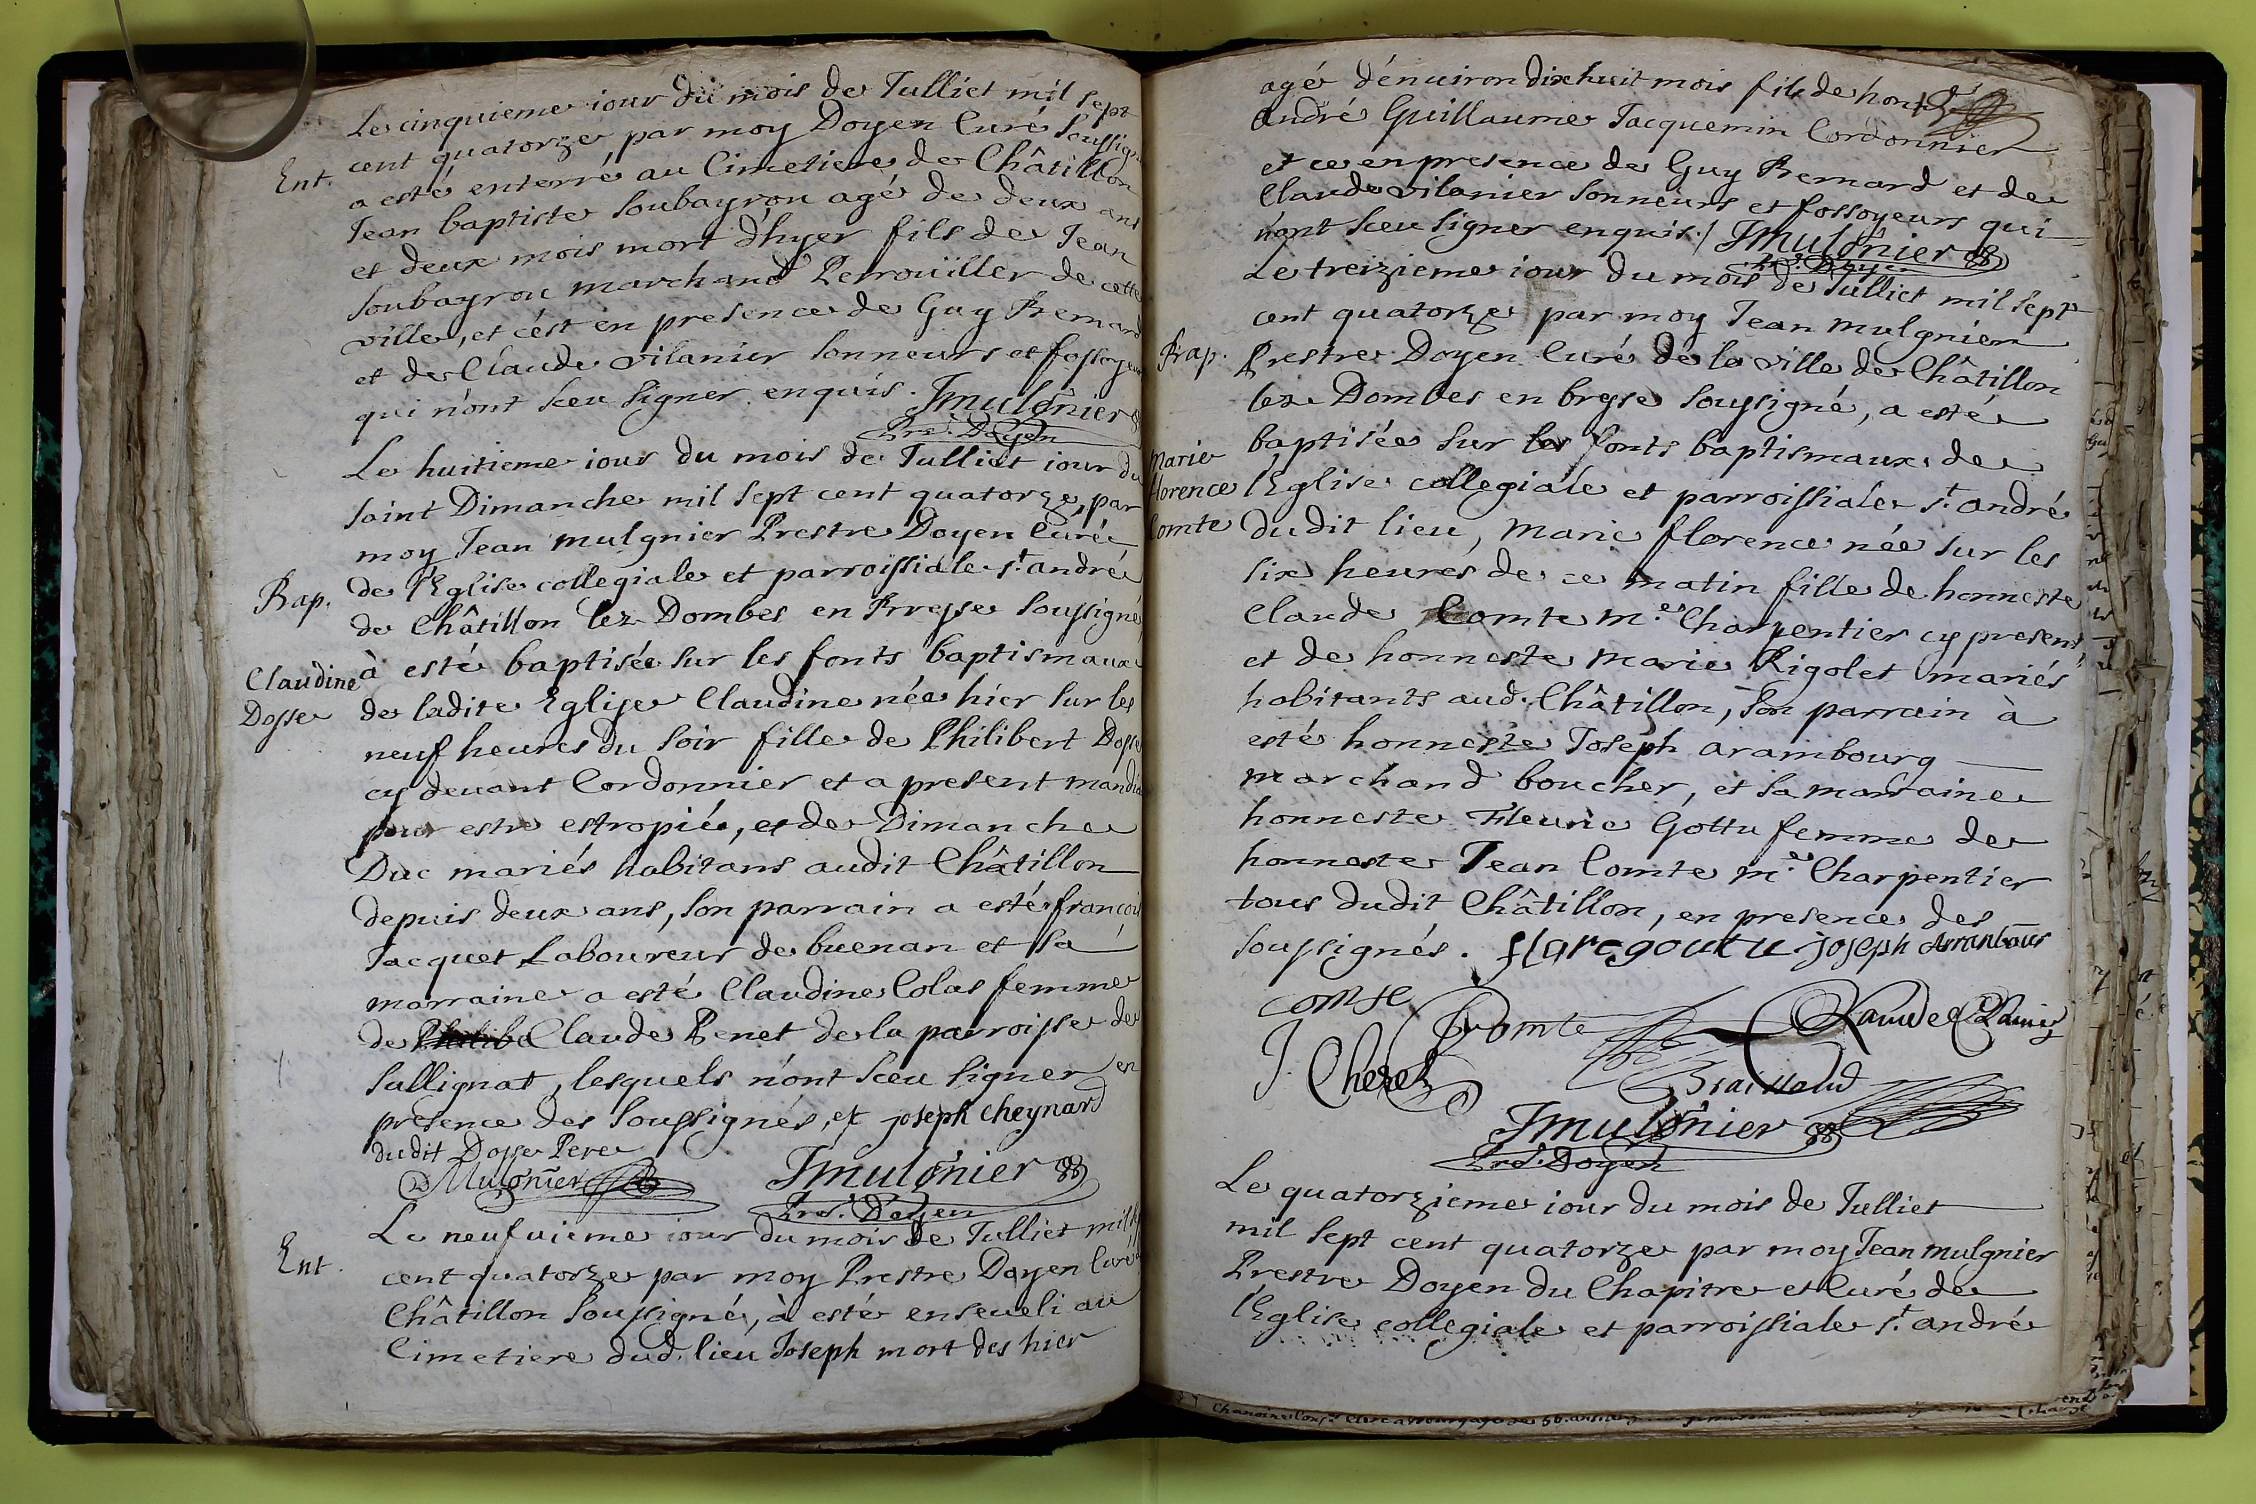 Le cinquieme iour du mois de Julliet mil sept
cent quatorze par moy Doyen Curé soussigné
Ent.
a esté enterré au Cimetiere de Châtillon
Jean baptiste Soubayrou agé de deux ans
et deux mois mort d'hyer fils de Jean
Soubayrou marchand Perroüiller de cette
ville, et c'est en presence de Guy Bernard
et de Claude vilanier sonneurs et fossoyeurs
qui n'ont sceu signer enquis. JMulgnier
Pre. Doyen
Le huitieme iour du mois de Julliet iour du
saint Dimanche mil sept cent quatorze, par
moy Jean Mulgnier Prestre Doyen Curé
Bap.
de l'Eglise collegiale et parroissiale st. andré
de Châtillon lez Dombes en Breyse soussigné
Claudine
Dosse
à esté baptisée sur les fonts baptismaux
de ladite Eglise Claudine née hier sur les
neuf heures du soir fille de Philibert Dosse
cy devant Cordonnier et a present mandia
pour estre estropié, et de Dimanche
Duc mariés habitans audit Châtillon
depuis deux ans, son parrain a esté françois
Jacquet Laboureur de buenan et sa
marraine a esté Claudine Colas femme
de Philibe Claude Benet de la parroisse de
Sullignat, lesquels n'ont sceu signer en
presence des soussignés, et joseph cheynard
dudit Dosse Pere
Mulgnier JMulgnier
Pre. Doyen
Ent.
Le neufuieme iour du mois de Julliet mil sept
cent quatorze par moy Prestre Doyen Curé de
Châtillon soussigné, à esté enseueli au
Cimetiere dud. lieu Joseph mort des hier
agé d'enuiron dix huit mois fils de hont.
André Guillaume Jacquemin Cordonnier
et ce en presence de Guy Bernard et de
Claude vilanier sonneurs et fossoyeurs qui
n'ont sceu signer enquis./ JMulgnier
Pre. Doyen
Le treizieme iour du mois de Julliet mil sept
cent quatorze par moy Jean mulgnier
Bap.
Prestre Doyen Curé de la ville de Châtillon
lez Dombes en breyse soussigné, a esté
Marie
florence
Comte
baptisée sur les fonts baptismaux de
l'Eglise collegiale et parroissiale st. andré
dudit lieu, Marie florence née sur les
six heures de ce matin fille de honneste
Claude Comte me. Charpentier cy present,
et de honneste Marie Rigolet mariés
habitants aud. Châtillon, son parrain à
esté honneste Joseph arambourg
marchand boucher, et sa marraine
honneste Fleurie Gottu femme de
honneste Jean Comte me. Charpentier
tous dudit Châtillon, en presence des
soussignés. flare goutu joseph Arranbour
comte
J. Cherel
Braissaud
JMulgnier
Pre. Doyen
Le quatorzieme iour du mois de Julliet
mil sept cent quatorze par moy Jean mulgnier
Prestre Doyen du Chapitre et Curé de
l'Eglise collegiale et parroissiale st. andré